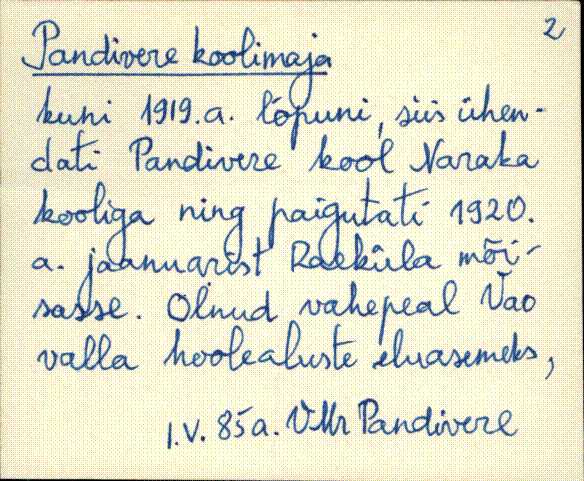 2
Pandivere koolimaja
kuni 1919.a. lõpuni, siis ühen-
dati Pandivere kool Naraka
kooliga ning paigutati 1920.
a. jaanuarist Raeküla mõi-
sasse. Olnud vahepeal Vao
valla hoolealuste eluasemeks,
1.V. 85a. VMr Pandivere